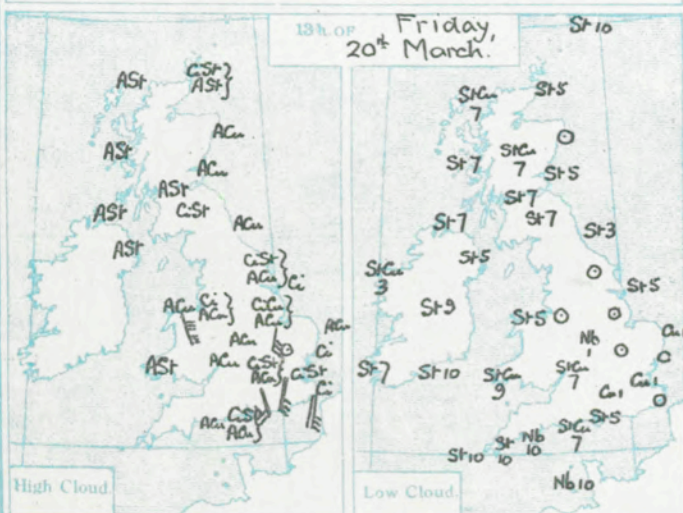 13h. OF Friday,
20th March.
ASt
CiSt
ASt
ACu
ASt
ACu
ASt
CiSt
ASt
ACu
ASt
CiSt
ACu
Ci
ACu
Ci
ACu
CiCu
ACu
ACu
ACu
Ci
ACu
CiSt
ACu
CiSt
Ci
ASt
ACu
CiSt
ACu
High Cloud.
St 10
StCu
7
St5
St7
StCu
7
St5
St7
St7
St7
St3
St5
StCu
3
St5
St9
St5
Nb
1
St7
St10
StCu
9
StCu
7
Cu1
Cu1
St5
StCu
7
St10
St
10
Nb
10
Nb10
Low Cloud.